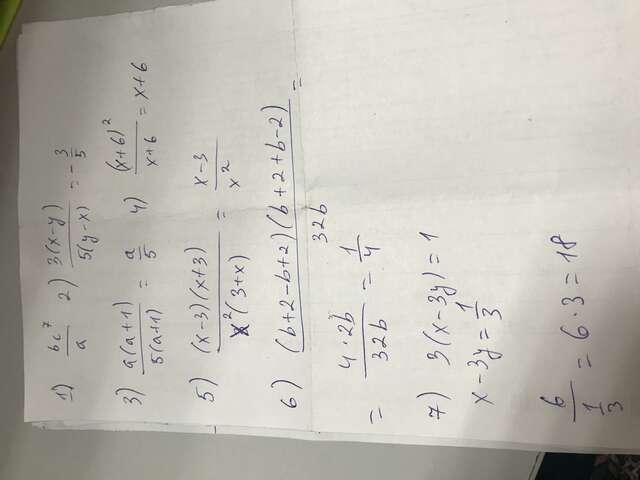 1) bc⁷/a 2) 3(x-y)/5(y-x) = -3/5
3) a(a+1)/5(a+1) = a/5 4) (x+6)²/x+6 = x+6
5) (x-3)(x+3)/x²(3+x) = x-3/x²
6) (b+2-b+2)(b+2+b-2)/32b =
= 4·2b/32b = 1/4
7) 3(x-3y)=1
x-3y=1/3
6/(1/3) = 6·3=18